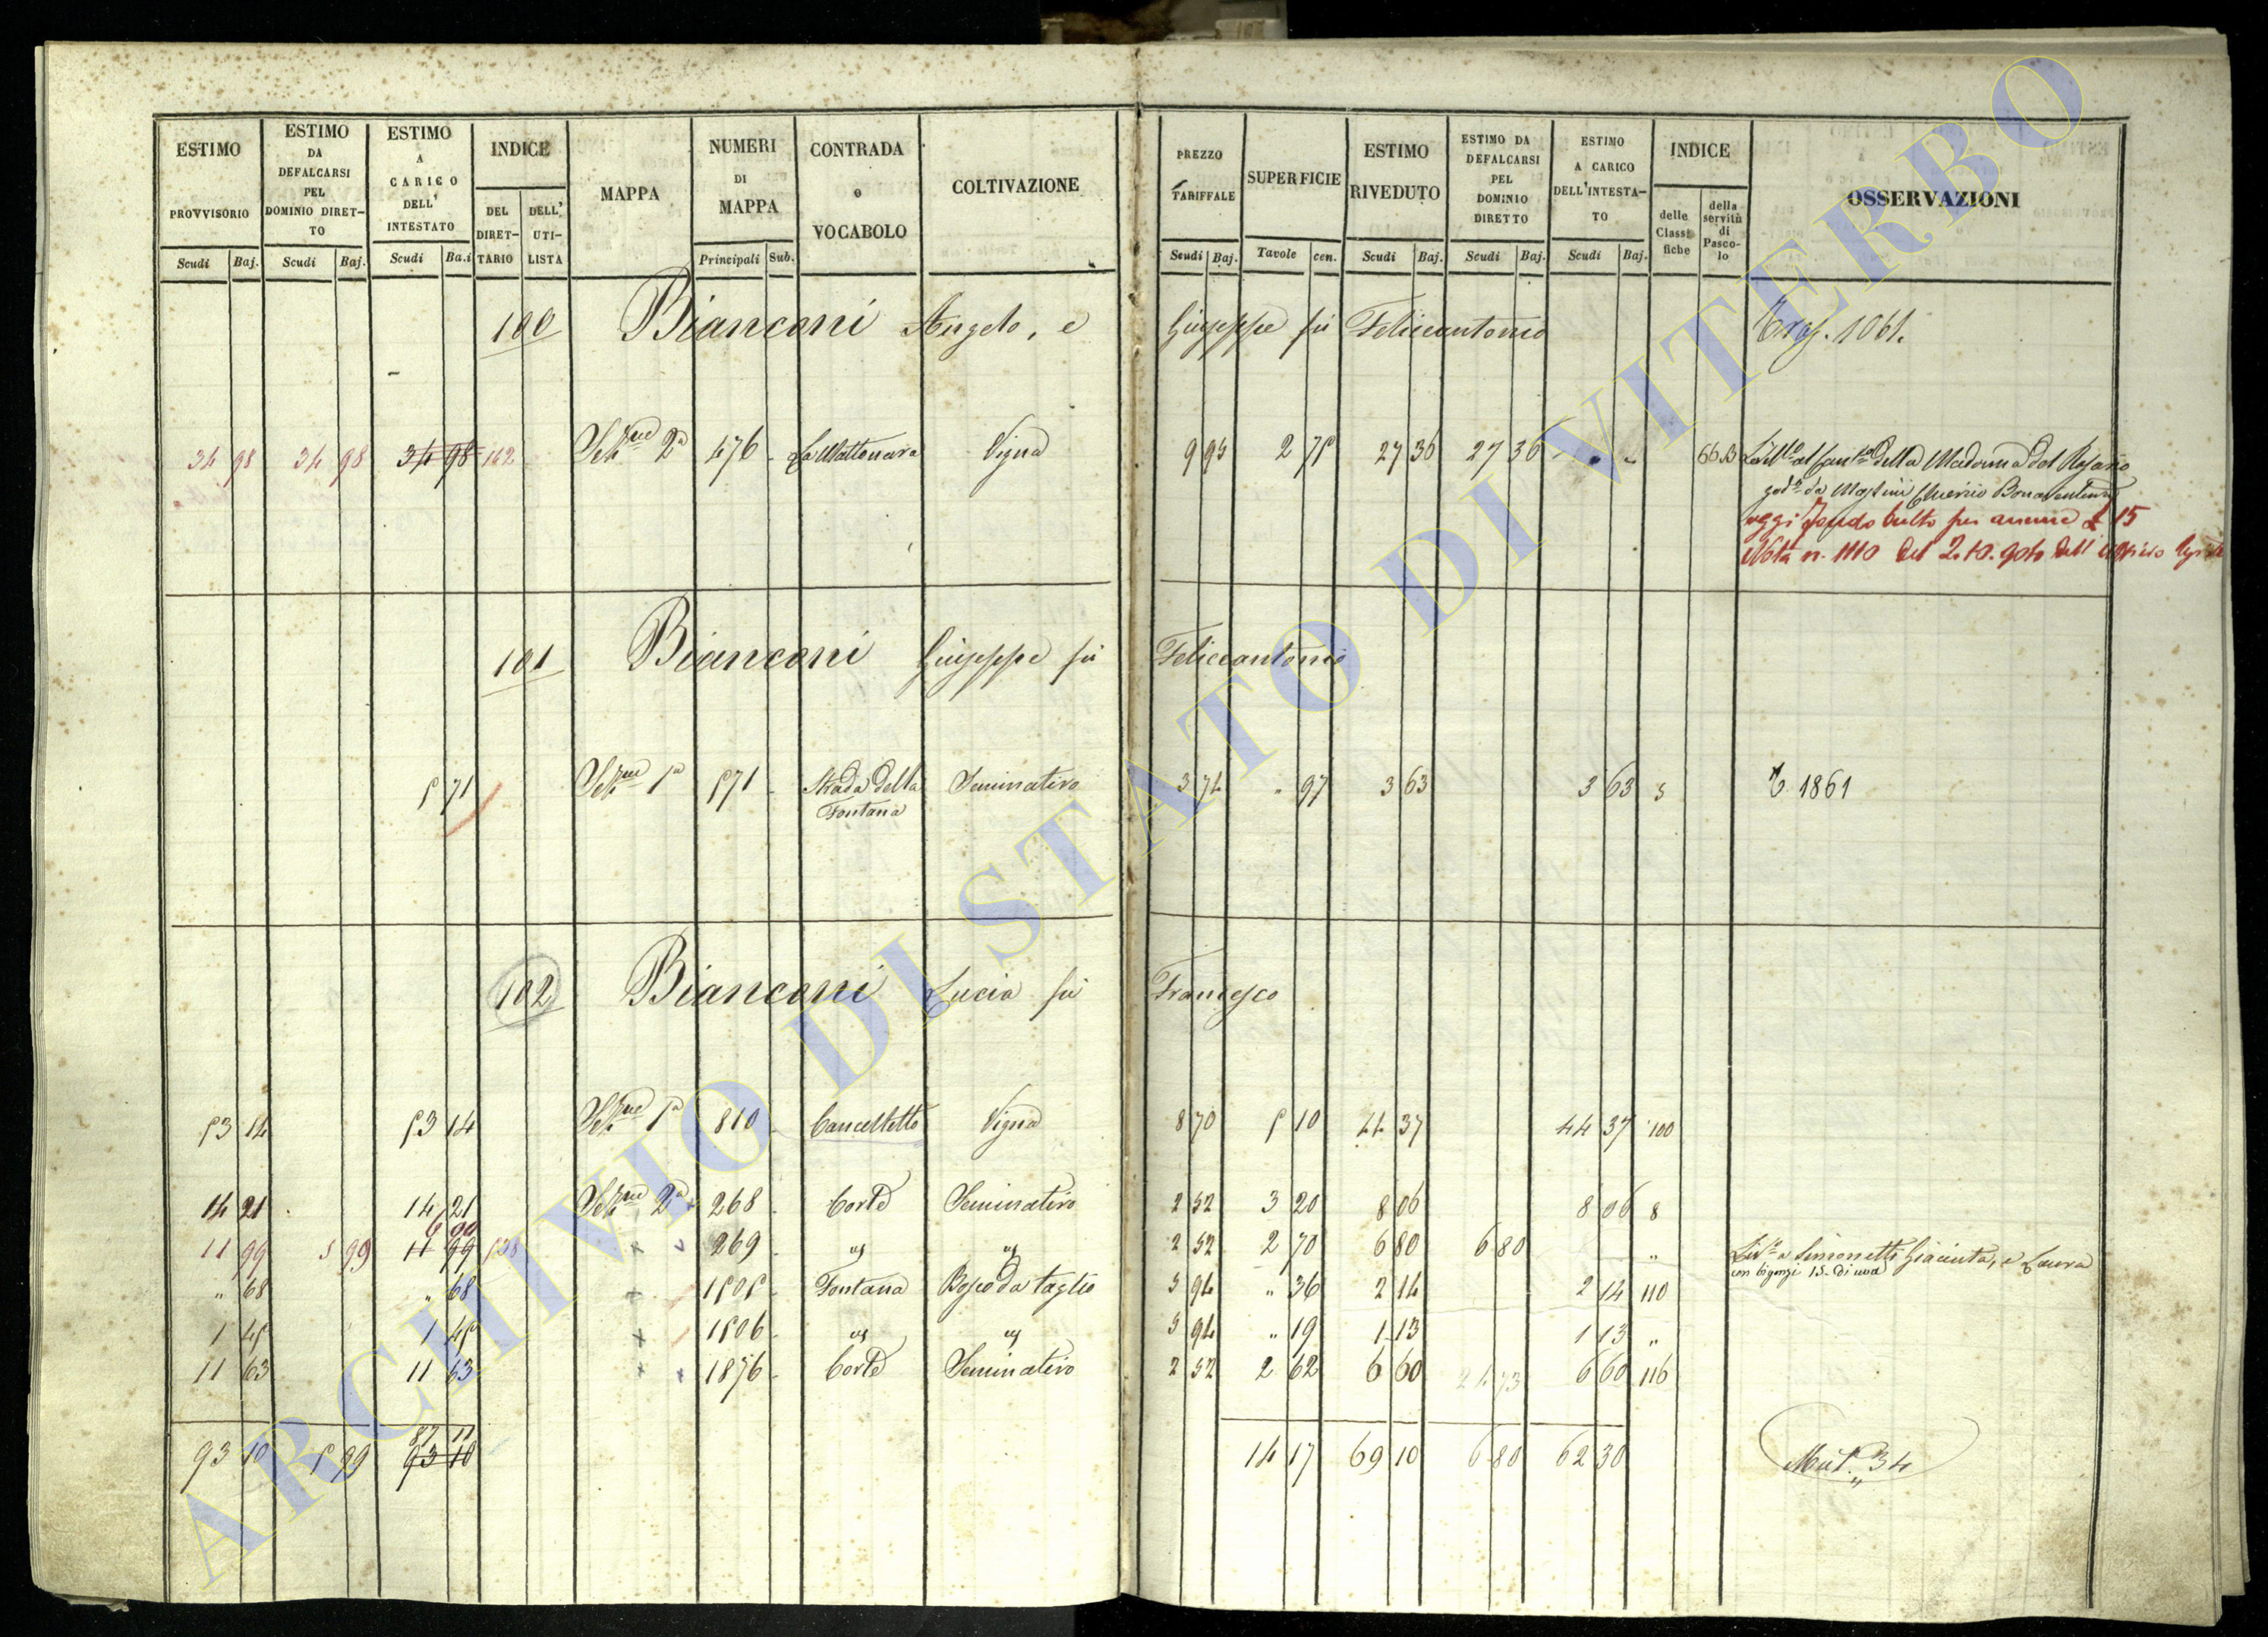 ESTIMO PROVVISORIO Scudi Baj.
ESTIMO DA DEFALCARSI PEL DOMINIO DIRET-TO Scudi Baj.
ESTIMO A CARICO DELL' INTESTATO Scudi Ba.i
INDICE DEL DIRET-TARIO DELL' UTI-LISTA
MAPPA
NUMERI DI MAPPA Principali Sub.
CONTRADA o VOCABOLO
COLTIVAZIONE
PREZZO TARIFFALE Scudi Baj.
SUPERFICIE Tavole cen.
ESTIMO RIVEDUTO Scudi Baj.
ESTIMO DA DEFALCARSI PEL DOMINIO DIRETTO Scudi Baj.
ESTIMO A CARICO DELL'INTESTA-TO Scudi Baj.
INDICE delle Classi fiche della servitù di Pasco-lo
OSSERVAZIONI
100 Bianconi Angelo, e Giuseppe fù Feliceantonio 1061.
34 98 34 98 34 98 162 Sek.ne 2a 476 La Mattonara Vigna 9 95 2 75 27 36 27 36 66 della Madonna del Rosario
da Bonaventura
oggi fondo per annue £ 15
Nota n. 1110 del
101 Bianconi Giuseppe fù Feliceantonio
5 71 Sez.ne 1a 571 Strada della Fontana Seminativo 3 74 " 97 3 63 3 63 5 1861
102 Bianconi Lucia fù Francesco
53 14 53 14 Sez.ne 1a 810 Cancelletto Vigna 8 70 5 10 44 37 44 37 100
14 21 14 21 Sez.ne 2a 268 Corte Seminativo 2 52 3 20 8 06 8 06 8
6 00
11 99 5 99 11 99 269 " " 2 52 2 70 6 80 6 80 " a Simonetti Giacinta, e Laura
con bigonzi 15 di uva
" 68 " 68 1505 Fontana Bosco da taglio 5 94 " 36 2 14 2 14 110
1 45 1 45 1506 " " 5 94 " 19 1 13 1 13 "
11 63 11 63 1876 Corte Seminativo 2 52 2 62 6 60 6 60 116
87 11
93 10 5 99 93 10 14 17 69 10 6 80 62 30 Mut. 34
ARCHIVIO DI STATO DI VITERBO